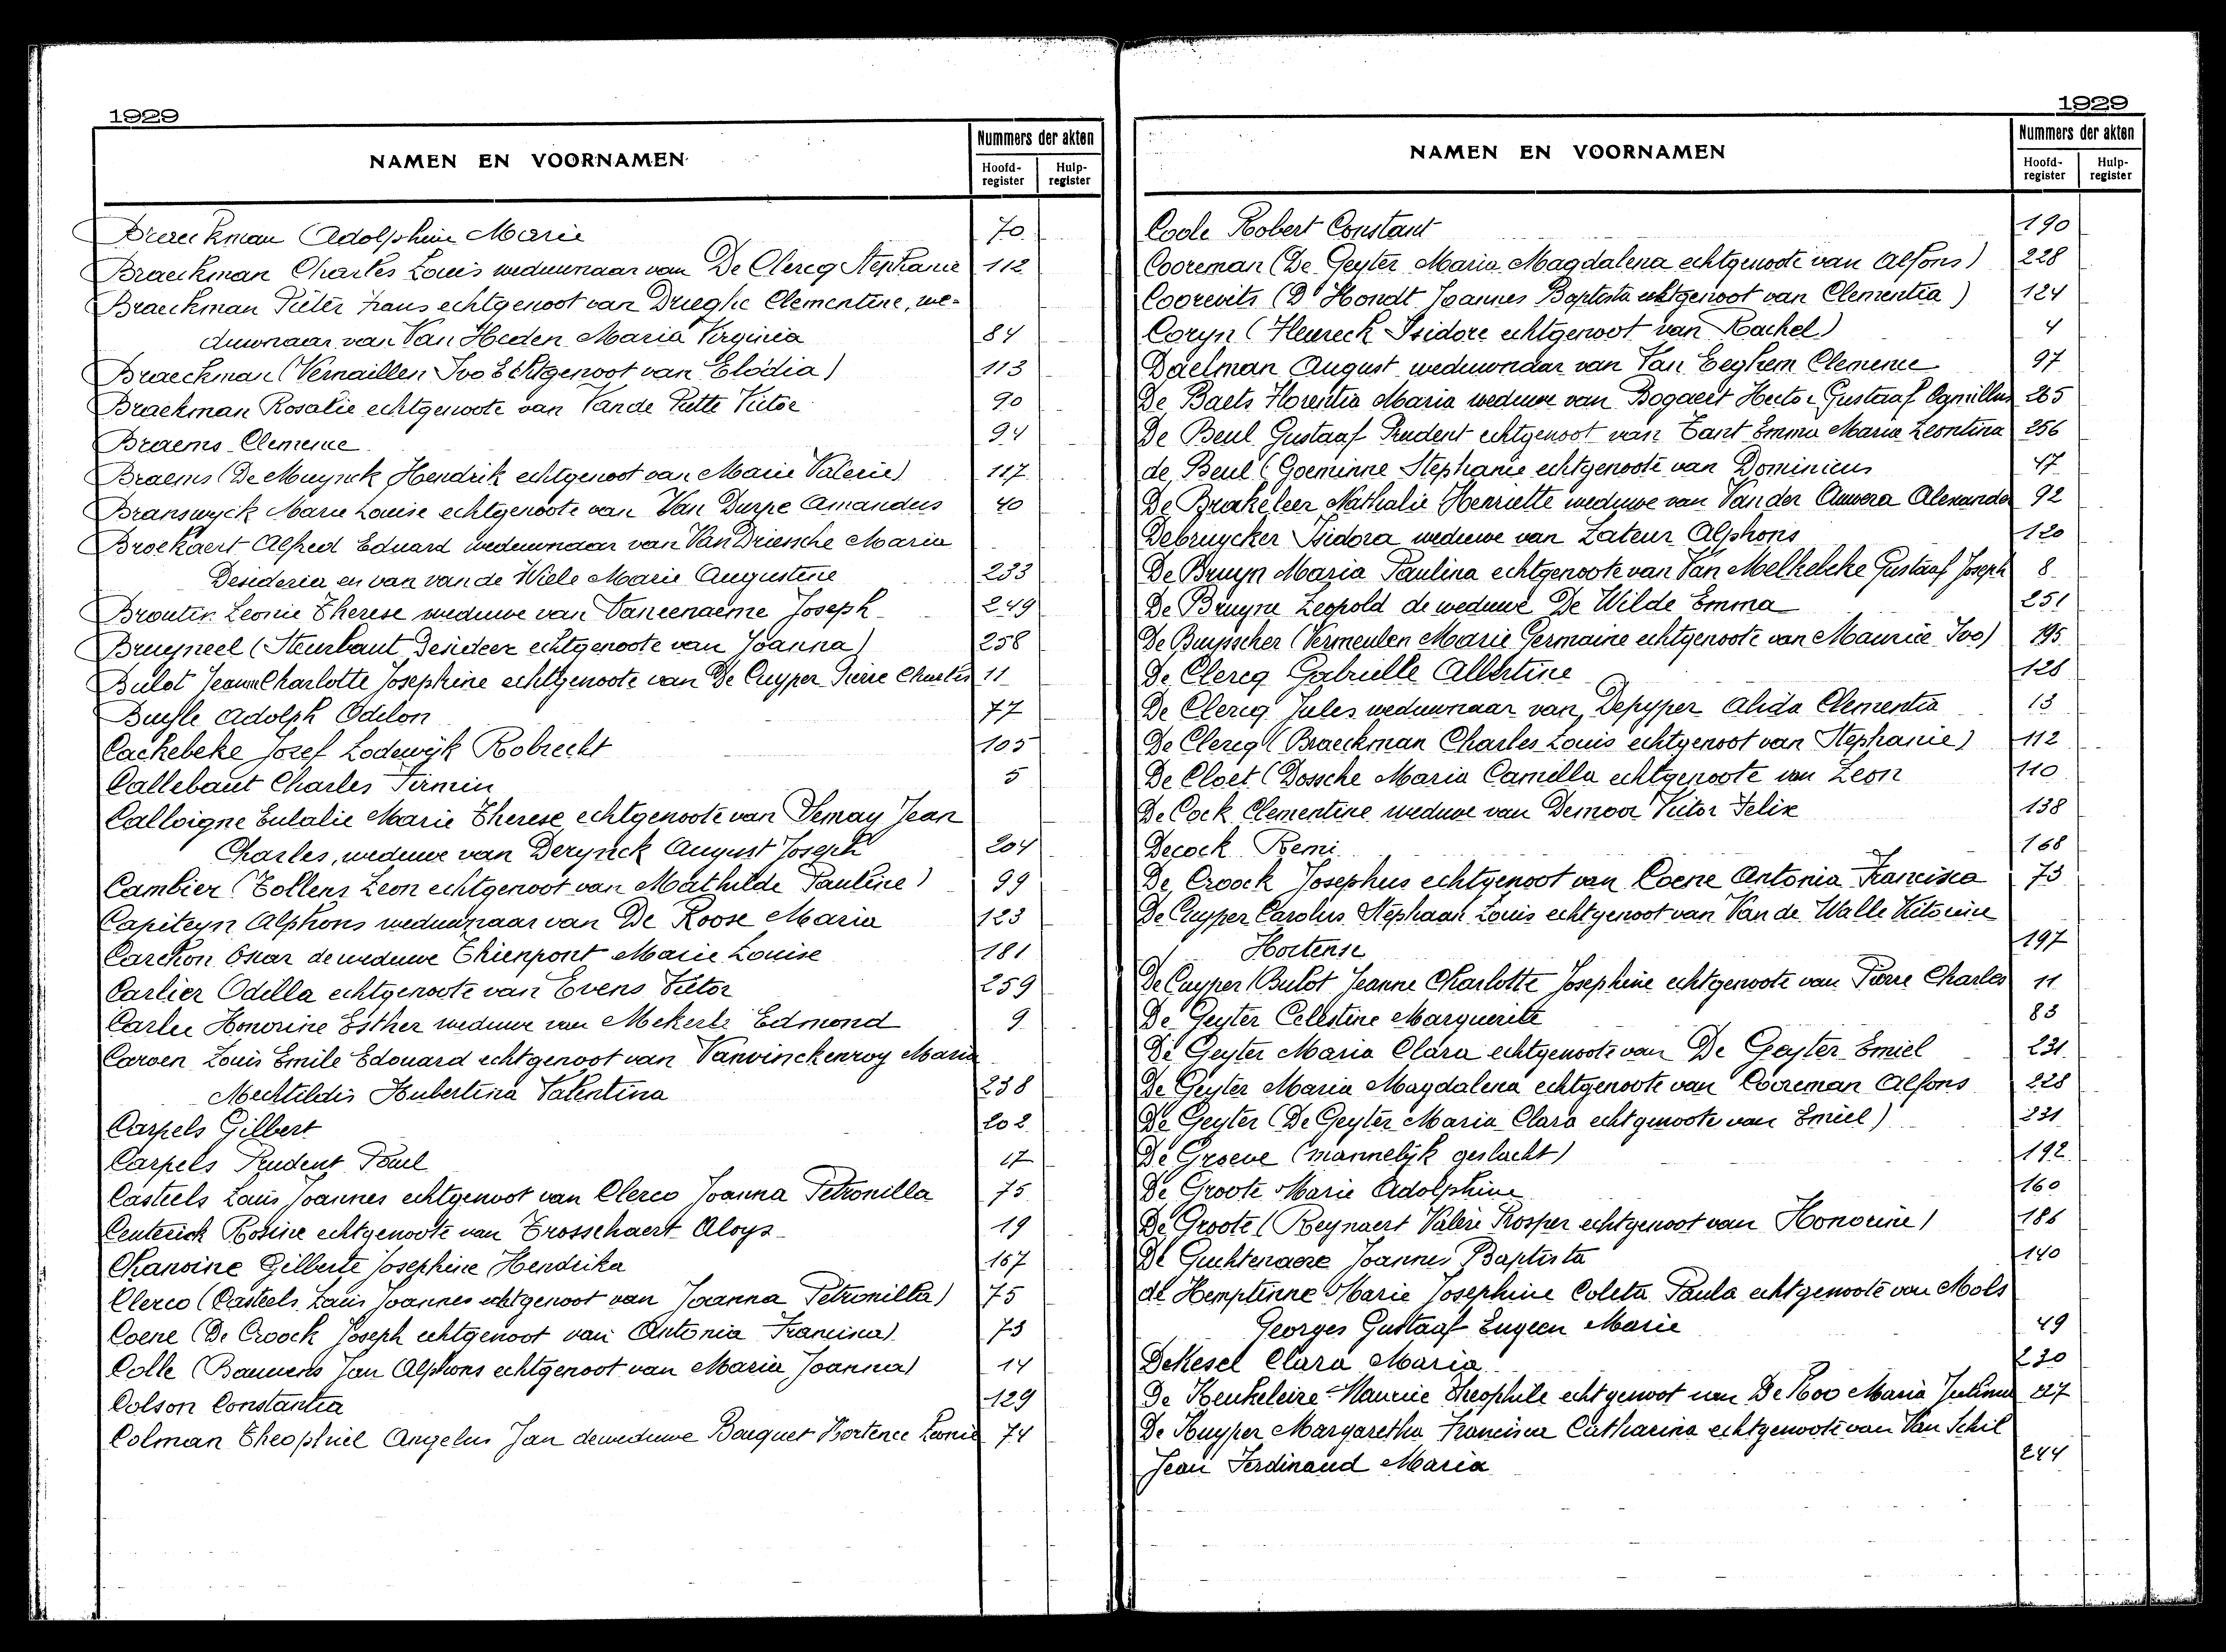 1929
NAMEN EN VOORNAMEN
Nummers der akten
Hoofd-register
Hulp-register
Braeckman Adolphine Marie 70
Braeckman Charles Louis weduwnaar van De Clercq Stephanie 112
Braeckman Pieter Frans echtgenoot van Drieghe Clementine, we-
duwnaar van Van Heden Maria Virginia 84
Braeckman (Vernaillen Ivo Echtgenoot van Elodia) 113
Braekman Rosalie echtgenoote van Van de Putte Victor 90
Braems Clemence 94
Braems (De Muynck Hendrik echtgenoot van Marie Valerie) 117
Branswyck Marie Louise echtgenoote van Van Durpe Amandus 40
Broekaert Alfred Eduard weduwnaar van Van Driessche Maria
Desideria en van van de Wiele Marie Augustine 233
Broutin Leonie Therese weduwe van Vaneenaeme Joseph 249
Bruyneel (Steurbaut Desideer echtgenoote van Joanna) 258
Bulot Jeanne Charlotte Josephine echtgenoote van De Cuyper Pierre Charles 11
Buyle Adolph Odilon 77
Cackebeke Jozef Lodewijk Robrecht 105
Callebaut Charles Firmin 5
Calloigne Eulalie Marie Therese echtgenoote van Demay Jean
Charles, weduwe van Derynck August Joseph 204
Cambier (Tollens Leon echtgenoot van Mathilde Pauline) 99
Capiteyn Alphons weduwnaar van De Roose Maria 123
Carchon Oscar de weduwe Thienpont Marie Louise 181
Carlier Odilla echtgenoote van Evens Victor 259
Carlu Honorine Esther weduwe van Mekerle Edmond 9
Caroen Louis Emile Edouard echtgenoot van Vanvinckenroy Maria
Mechtildis Hubertina Valentina 238
Carpels Gilbert 202
Carpels Prudent Paul 17
Casteels Louis Joannes echtgenoot van Clerco Joanna Petronilla 75
Centerick Rosine echtgenoote van Trosschaert Aloys 19
Chanoine Gilberte Josephine Hendrika 167
Clerco (Casteels Louis Joannes echtgenoot van Joanna Petronilla) 75
Coene (De Croock Joseph echtgenoot van Antonia Francisca) 73
Colle (Bauwens Jan Alphons echtgenoot van Maria Joanna) 14
Colson Constantia 129
Colman Theophiel Angelus Jan de weduwe Bocquet Hortence Leonie 74
1929
NAMEN EN VOORNAMEN
Nummers der akten
Hoofd-register
Hulp-register
Coole Robert Constant 190
Cooreman (De Geyter Maria Magdalena echtgenoote van Alfons) 228
Coorevits (D'Hondt Joannes Baptista echtgenoot van Clementia) 124
Coryn (Heureck Isidore echtgenoot van Rachel) 4
Daelman August weduwnaar van Van Eeghem Clemence 97
De Baets Florentia Maria weduwe van Bogaert Hector Gustaaf Camillus 265
De Beul Gustaaf Prudent echtgenoot van Tant Emma Maria Leontina 256
de Beul (Goeminne Stephanie echtgenoote van Dominicus 47
De Brakeleer Nathalie Henriette weduwe van Van der Auwera Alexander 92
Debruycker Isidora weduwe van Lateur Alphons 120
De Bruyn Maria Paulina echtgenoote van Van Melkebeke Gustaaf Joseph 8
De Bruyne Leopold de weduwe De Wilde Emma 251
De Buysscher (Vermeulen Marie Germaine echtgenoote van Maurice Ivo) 195
De Clercq Gabrielle Albertine 128
De Clercq Jules weduwnaar van Depyper Alida Clementia 13
De Clercq (Braeckman Charles Louis echtgenoot van Stephanie) 112
De Cloet (Dossche Maria Camilla echtgenoote van Leon 110
De Cock Clementine weduwe van Demoor Victor Felix 138
Decock Remi 168
De Croock Josephus echtgenoot van Coene Antonia Francisca 73
De Cuyper Carolus Stephaan Louis echtgenoot van Van de Walle Victorine
Hortense 197
De Cuyper (Bulot Jeanne Charlotte Josephine echtgenoote van Pierre Charles 11
De Geyter Celestine Marguerite 83
De Geyter Maria Clara echtgenoote van De Geyter Emiel 231
De Geyter Maria Magdalena echtgenoote van Cooreman Alfons 228
De Geyter (De Geyter Maria Clara echtgenoote van Emiel) 231
De Graeve (mannelijk geslacht) 192
De Groote Marie Adolphine 160
De Groote (Reynaert Valère Prosper echtgenoot van Honorine) 186
De Guchtenaere Joannes Baptista 140
de Hemptinne Marie Josephine Coleta Paula echtgenoote van Mols
Georges Gustaaf Eugeen Marie 49
DeKesel Clara Maria 230
De Keukeleire Maurice Theophile echtgenoot van De Roo Maria Julienne 227
De Kuyper Margaretha Francisca Catharina echtgenoote van Van Schil
Jean Ferdinand Maria 244